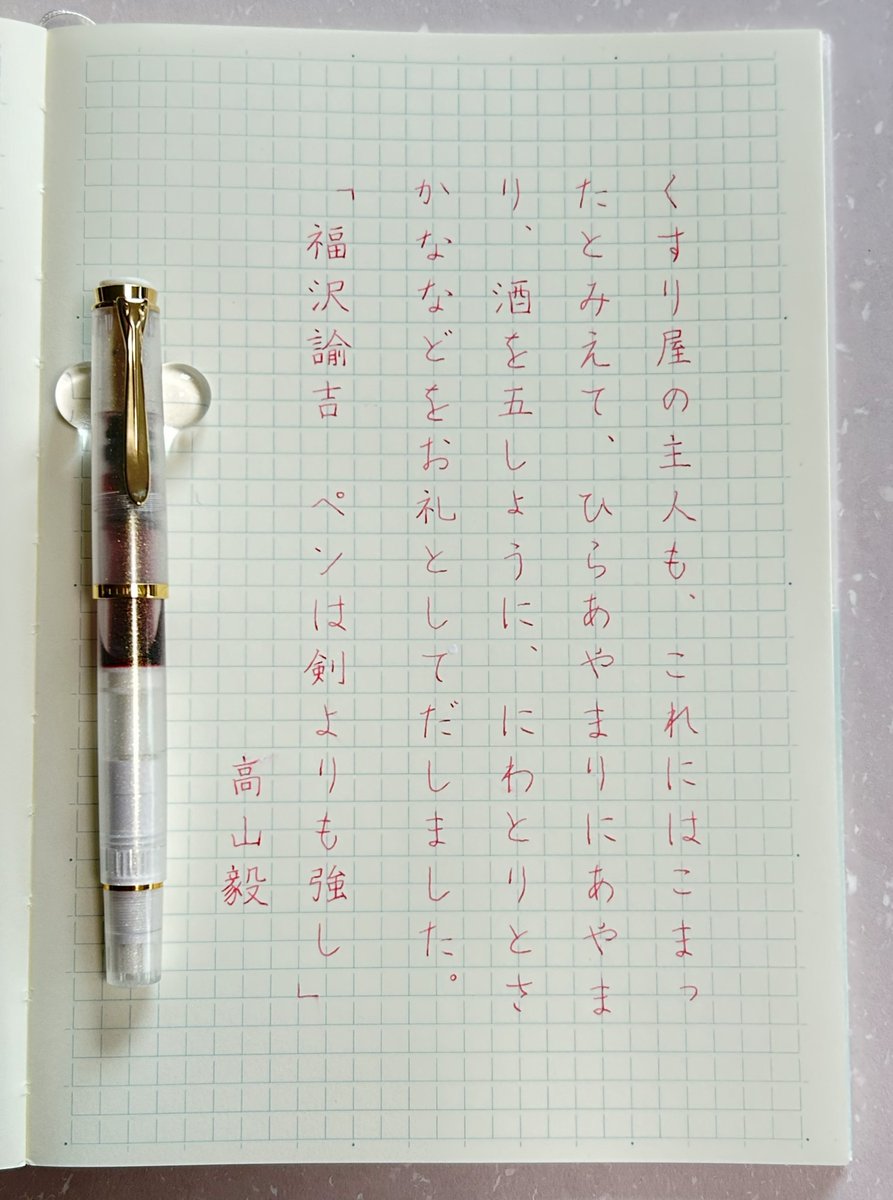 くすり屋の主人も、これにはこまっ
たとみえて、ひらあやまりにあやま
り、酒を五しょうに、にわとりとさ
かななどをお礼としてだしました。
「福沢諭吉　ペンは剣よりも強し」
高山毅